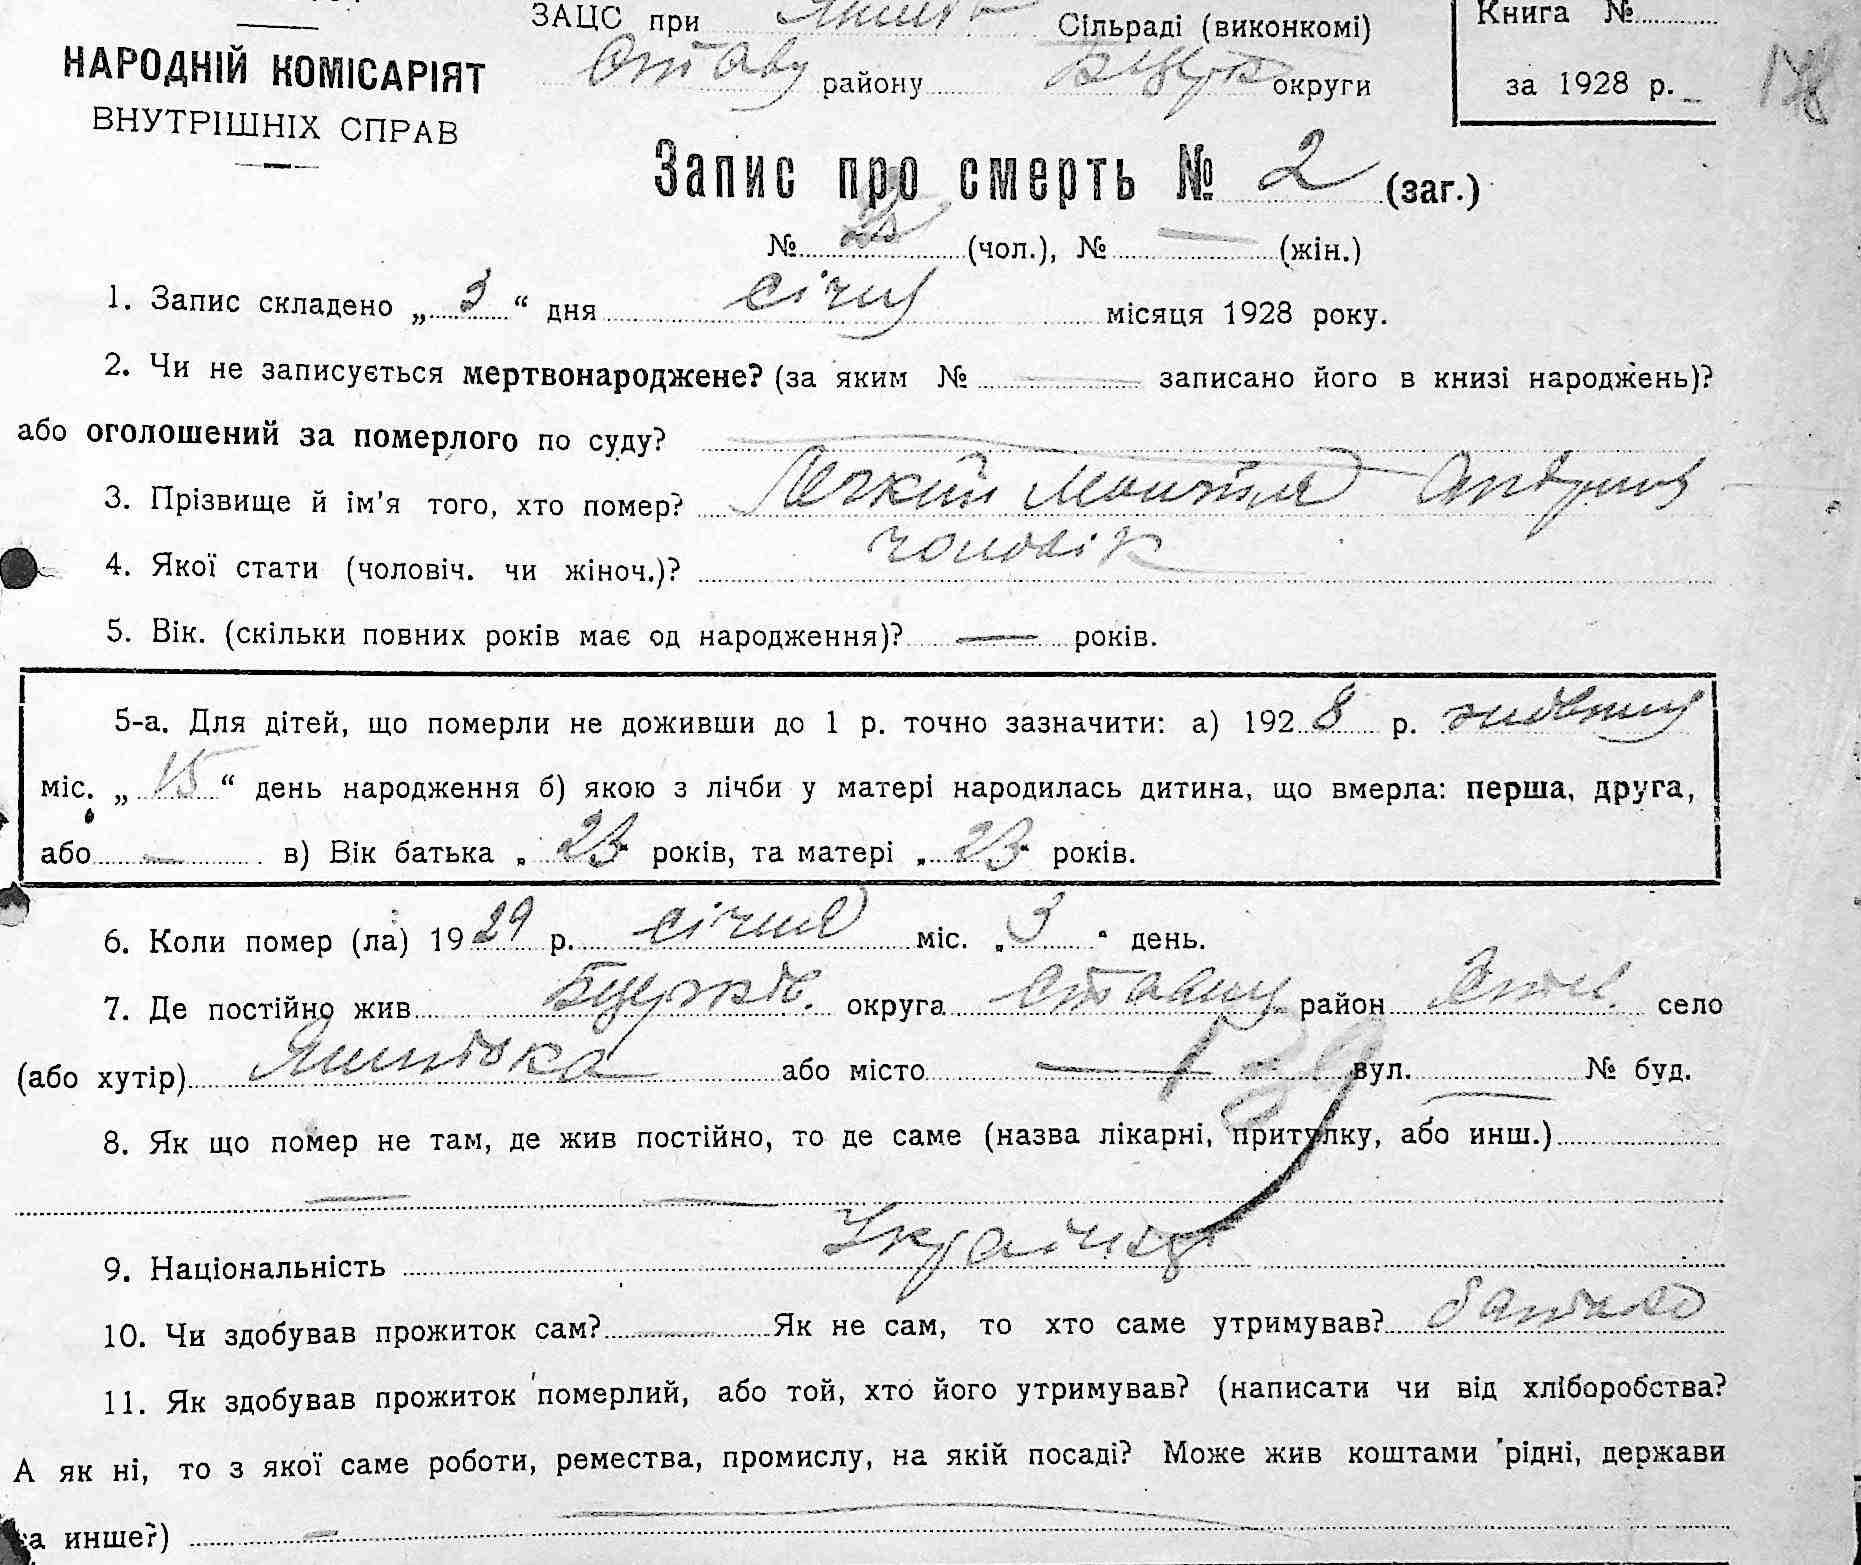 ЗАЦС при Сільраді (виконкомі)
Книга №
НАРОДНІЙ КОМІСАРІЯТ
району округи
за 1928 р.
ВНУТРІШНІХ СПРАВ
Запис про смерть № 2 (заг.)
№ 2 (чол.), № — (жін.)
1. Запис складено „ 3 “ дня січня місяця 1928 року.
2. Чи не записується мертвонароджене? (за яким № — записано його в книзі народжень)?
або оголошений за померлого по суду? —
3. Прізвище й ім'я того, хто помер?
4. Якої стати (чоловіч. чи жіноч.)? чоловік
5. Вік. (скільки повних років має од народження)? — років.
5-а. Для дітей, що померли не доживши до 1 р. точно зазначити: а) 1928 р. жовтня
міс. „ 15 “ день народження б) якою з лічби у матері народилась дитина, що вмерла: перша, друга,
або — в) Вік батька „ 23 років, та матері „ 23 років.
6. Коли помер (ла) 1929 р. січня міс. „ 3 “ день.
7. Де постійно жив округа район село
(або хутір) або місто — вул. — № буд.
8. Як що помер не там, де жив постійно, то де саме (назва лікарні, притулку, або инш.)
— —
9. Національність
10. Чи здобував прожиток сам? — Як не сам, то хто саме утримував? батько
11. Як здобував прожиток померлий, або той, хто його утримував? (написати чи від хліборобства?
А як ні, то з якої саме роботи, ремества, промислу, на якій посаді? Може жив коштами рідні, держави
та инше?) —